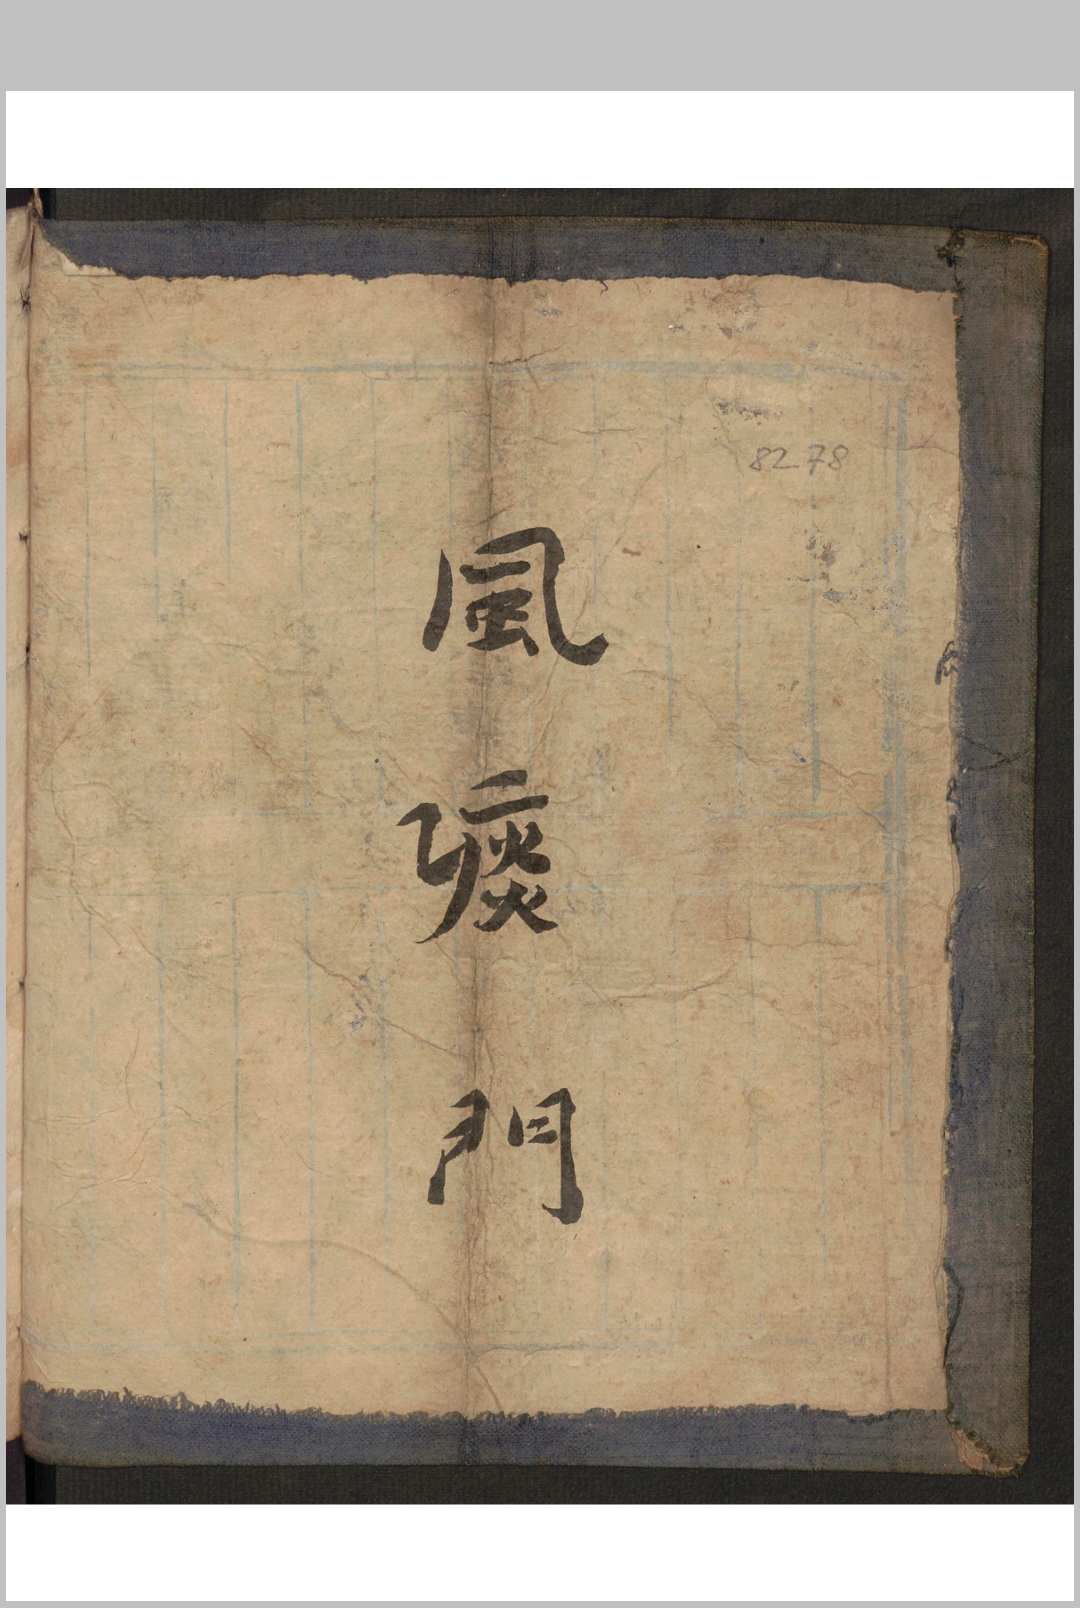 8278
風痰門